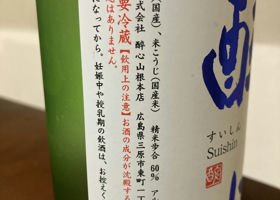 酔心
すいしん
Suishin
国産)、米こうじ(国産米)
精米歩合 60% ア
株式会社 酔心山根本店 広島県三原市東町一丁
要冷蔵【飲用上の注意】お酒の成分が沈殿する
はありません。
になってから。妊娠中や授乳期の飲酒は、お控えく